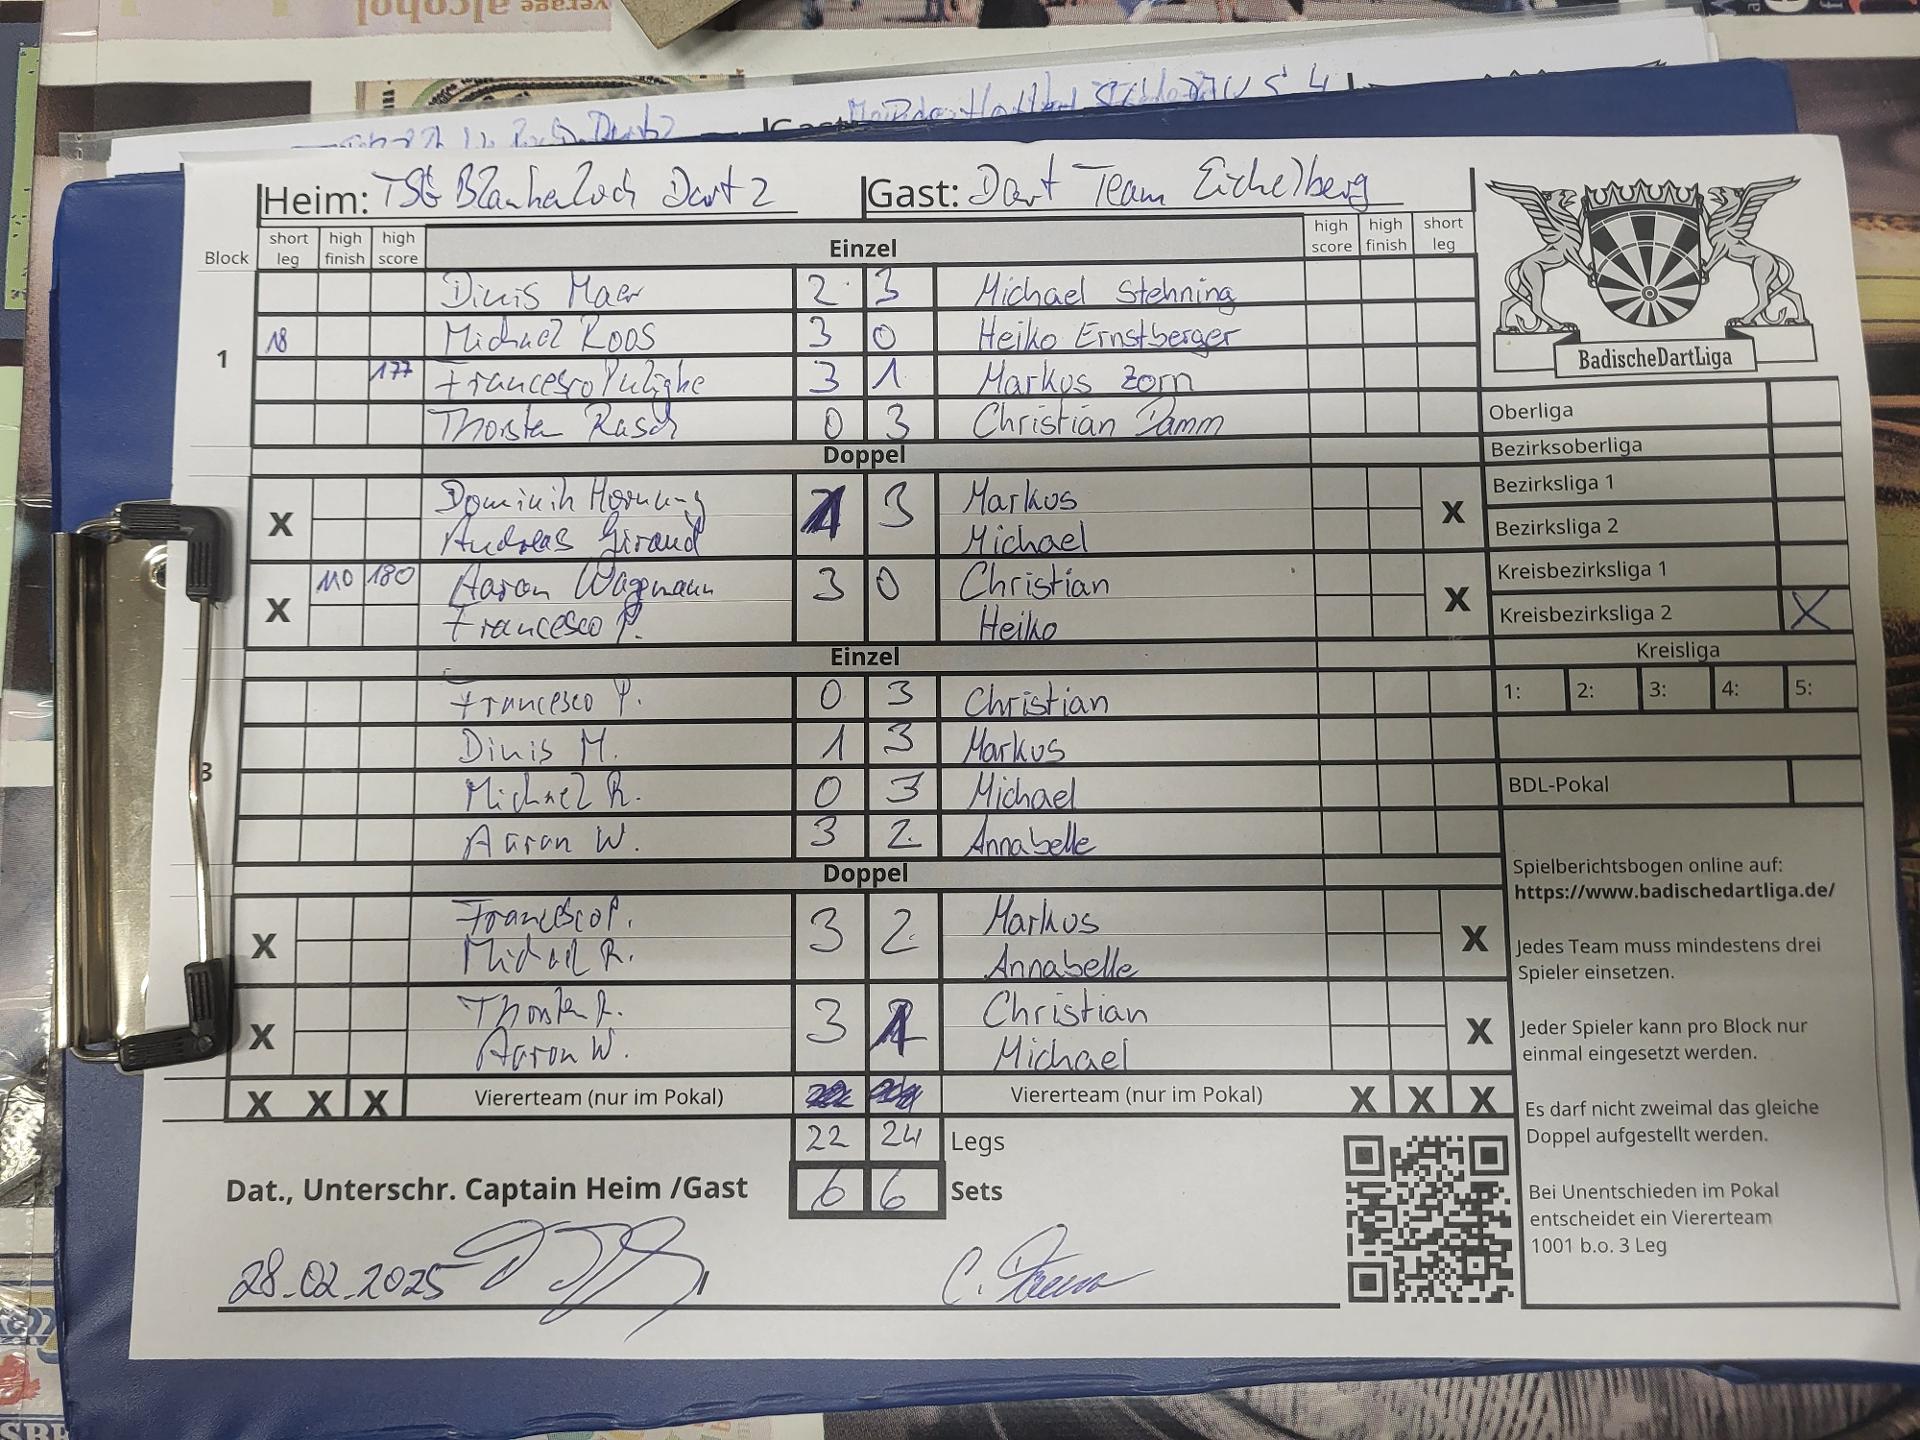 Heim: TSG Blankenloch Dart 2 Gast: Dart Team Eichelberg
Block short leg high finish high score Einzel high score high finish short leg
1
Dinis Maer 2 3 Michael Stehning
18 Michael Roos 3 0 Heiko Ernstberger
177 Francesco Pulighe 3 1 Markus Zorn
Thorsten Rasch 0 3 Christian Damm
Doppel
X Dominik Hornung 1 3 Markus X
Andreas Giraud Michael
X 110 180 Aaron Wagemann 3 0 Christian X
Francesco P. Heiko
Einzel
3
Francesco P. 0 3 Christian
Dinis M. 1 3 Markus
Michael R. 0 3 Michael
Aaron W. 3 2 Annabelle
Doppel
X Francesco P. 3 2 Markus X
Michael R. Annabelle
X Thorsten R. 3 1 Christian X
Aaron W. Michael
X X X Viererteam (nur im Pokal) Viererteam (nur im Pokal) X X X
22 24 Legs
Dat., Unterschr. Captain Heim /Gast 6 6 Sets
28.02.2025 C. Damm
BadischeDartLiga
Oberliga
Bezirksoberliga
Bezirksliga 1
Bezirksliga 2
Kreisbezirksliga 1
Kreisbezirksliga 2 X
Kreisliga
1: 2: 3: 4: 5:
BDL-Pokal
Spielberichtsbogen online auf:
https://www.badischedartliga.de/
Jedes Team muss mindestens drei
Spieler einsetzen.
Jeder Spieler kann pro Block nur
einmal eingesetzt werden.
Es darf nicht zweimal das gleiche
Doppel aufgestellt werden.
Bei Unentschieden im Pokal
entscheidet ein Viererteam
1001 b.o. 3 Leg